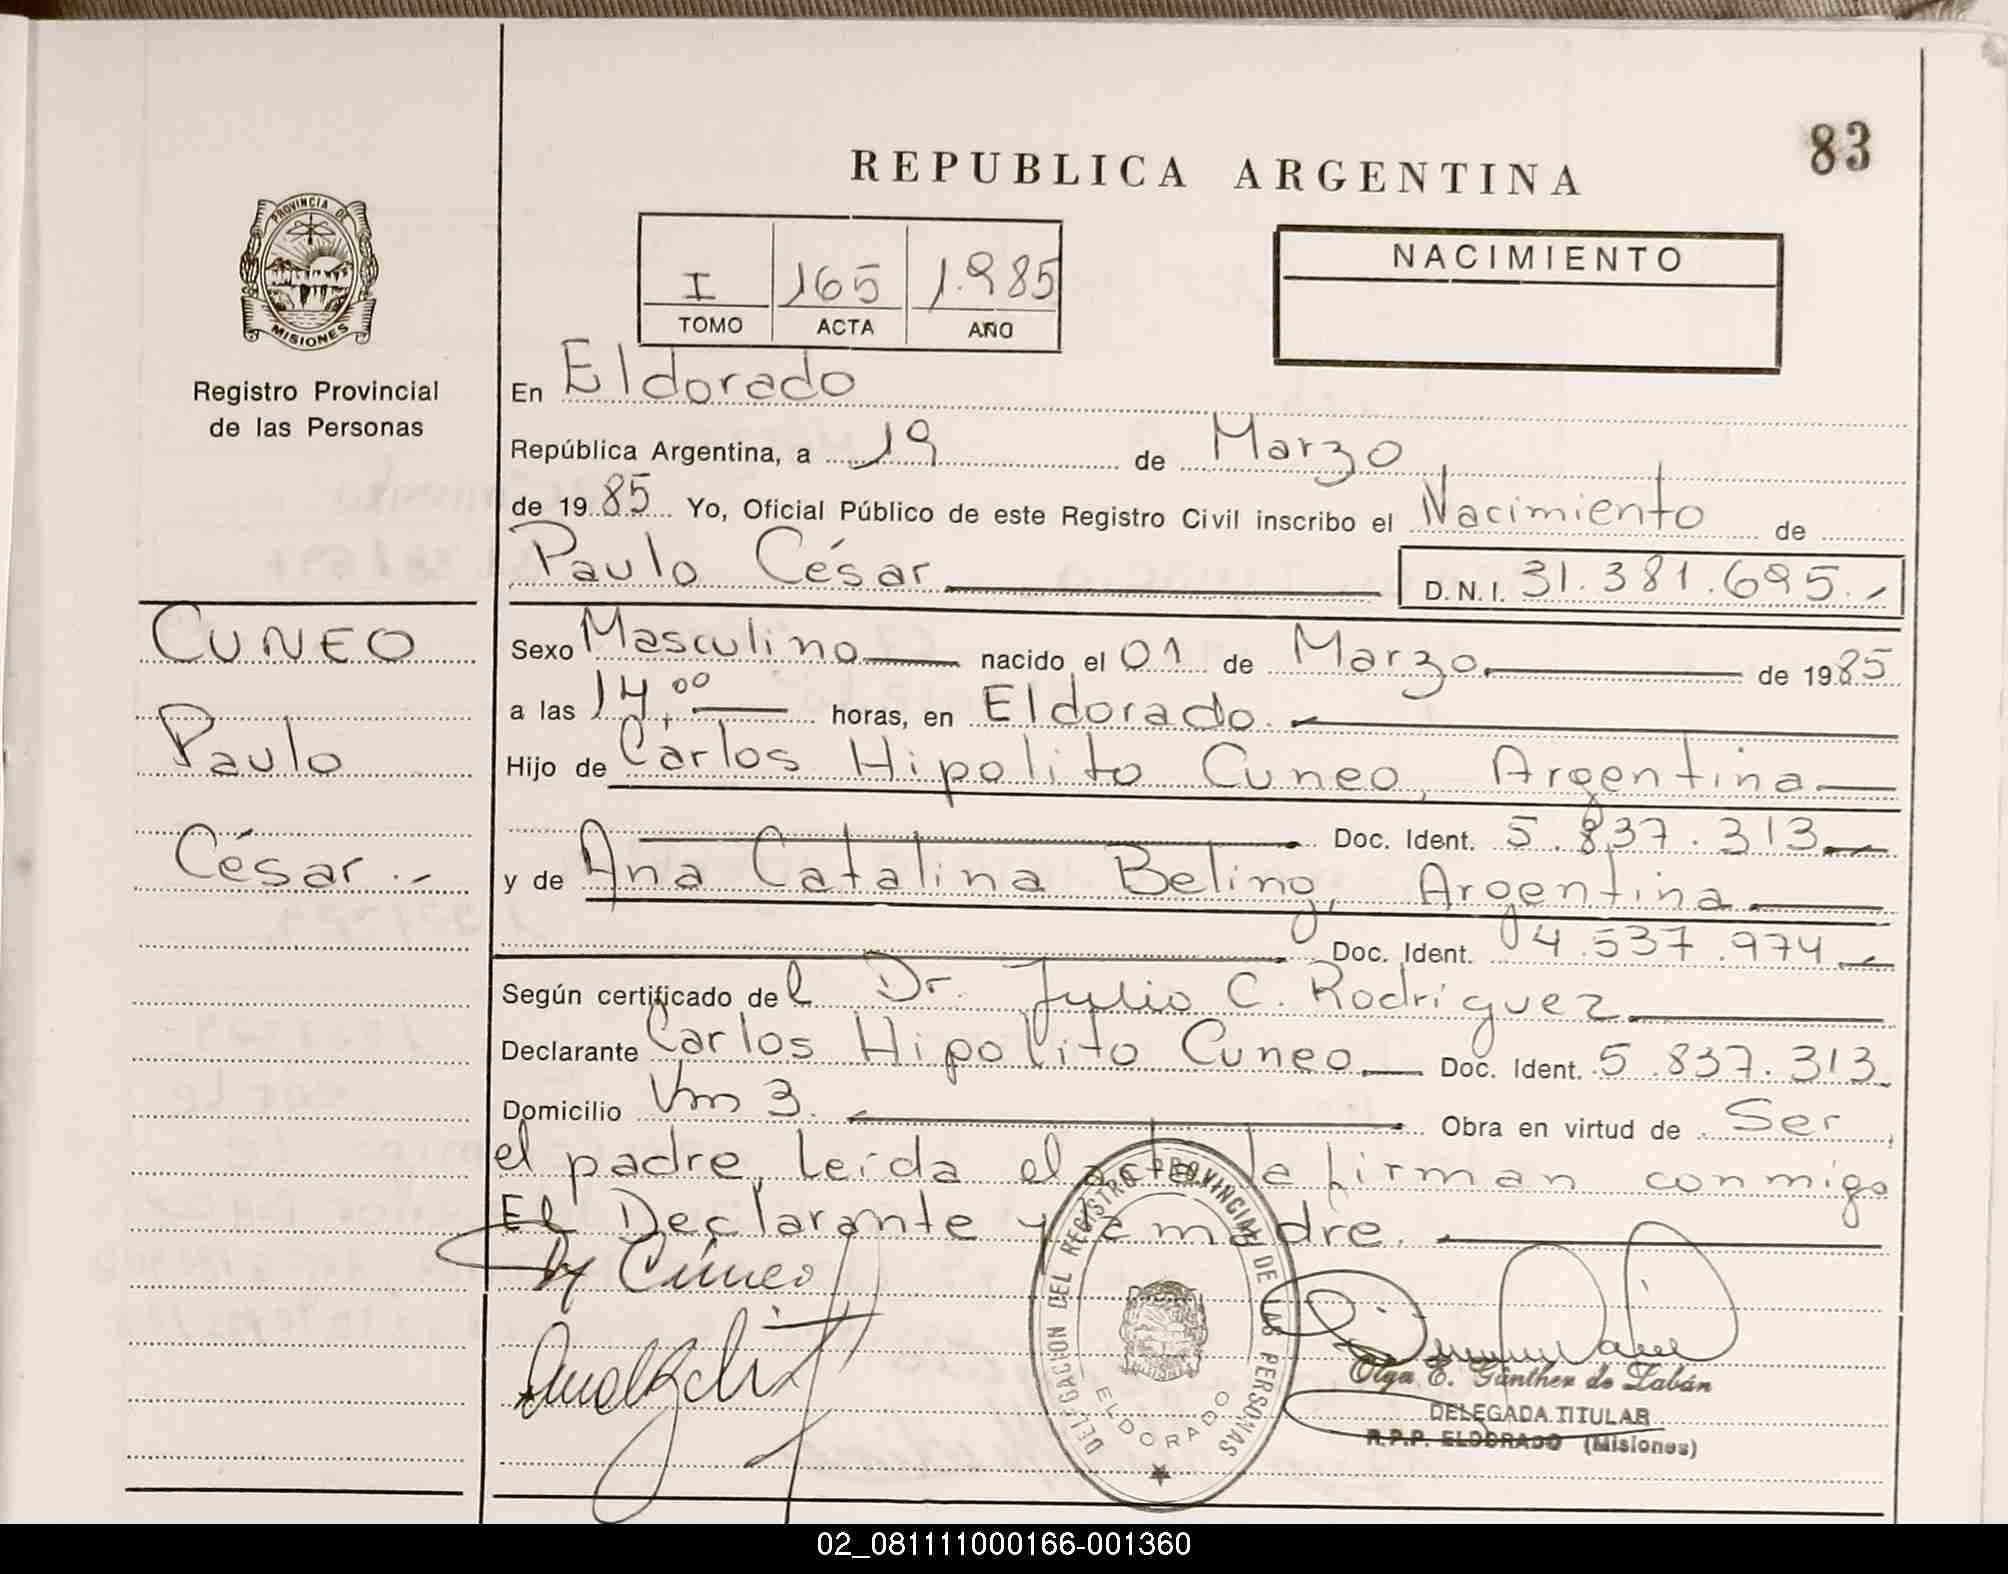 83
REPUBLICA ARGENTINA
PROVINCIA DE
MISIONES
Registro Provincial
de las Personas
I 165 1.985
TOMO ACTA AÑO
NACIMIENTO
En Eldorado
República Argentina, a 19 de Marzo
de 1985 Yo, Oficial Público de este Registro Civil inscribo el Nacimiento de
Paulo César D.N.I. 31.381.695.-
CUNEO
Paulo
César.-
Sexo Masculino nacido el 01 de Marzo de 1985
a las 14,00 horas, en Eldorado.
Hijo de Carlos Hipolito Cuneo, Argentina
Doc. Ident. 5.837.313
y de Ana Catalina Beling, Argentina
Doc. Ident. 4.537.974
Según certificado del Dr. Julio C. Rodríguez
Declarante Carlos Hipolito Cuneo Doc. Ident. 5.837.313
Domicilio Km 3. Obra en virtud de Ser
el padre, leída el acta la firman conmigo
El Declarante y la madre.
Cuneo
DELEGACION DEL REGISTRO PROVINCIAL DE LAS PERSONAS
ELDORADO
Olga E. Günther de Zabán
DELEGADA TITULAR
R.P.P. ELDORADO (Misiones)
02_081111000166-001360